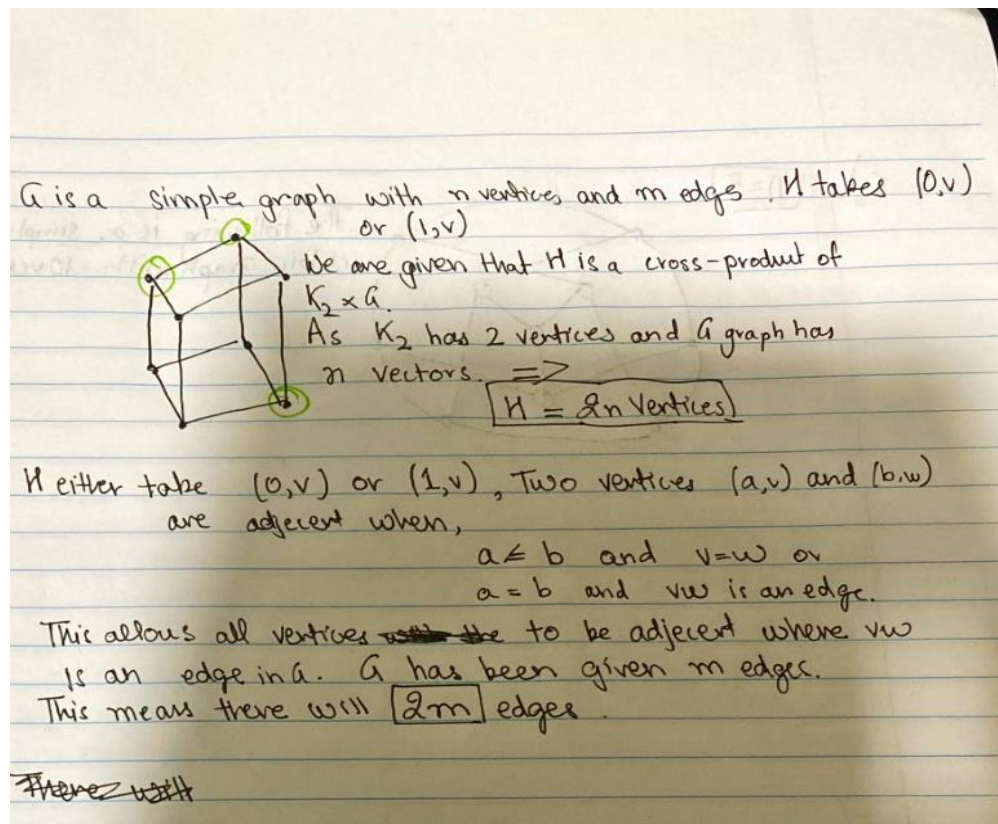 G is a simple graph with n vertices and m edges. H takes (0,v)
or (1,v)
We are given that H is a cross-product of
K₂ × G.
As K₂ has 2 vertices and G graph has
n vectors. =>
H = 2n Vertices
H either take (0,v) or (1,v), Two vertices (a,v) and (b,w)
are adjecent when,
a ≠ b and v=w or
a = b and vw is an edge.
This allous all vertices to be adjecent where vw
is an edge in G. G has been given m edges.
This means there will 2m edges.